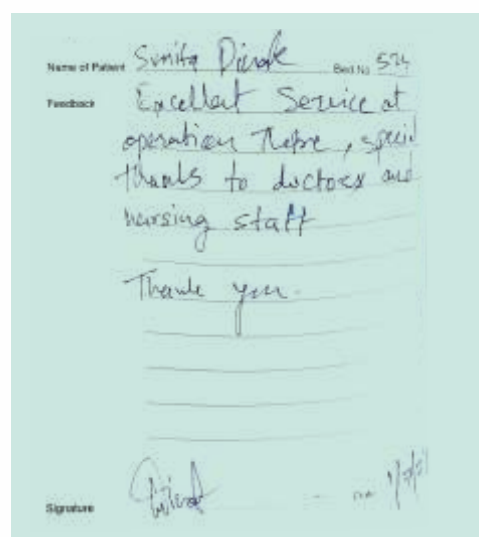 Name of Patient Sunita Bed No 524
Feedback Excellent Service at
operation , special
thanks to doctors and
nursing staff
Thank you.
Signature